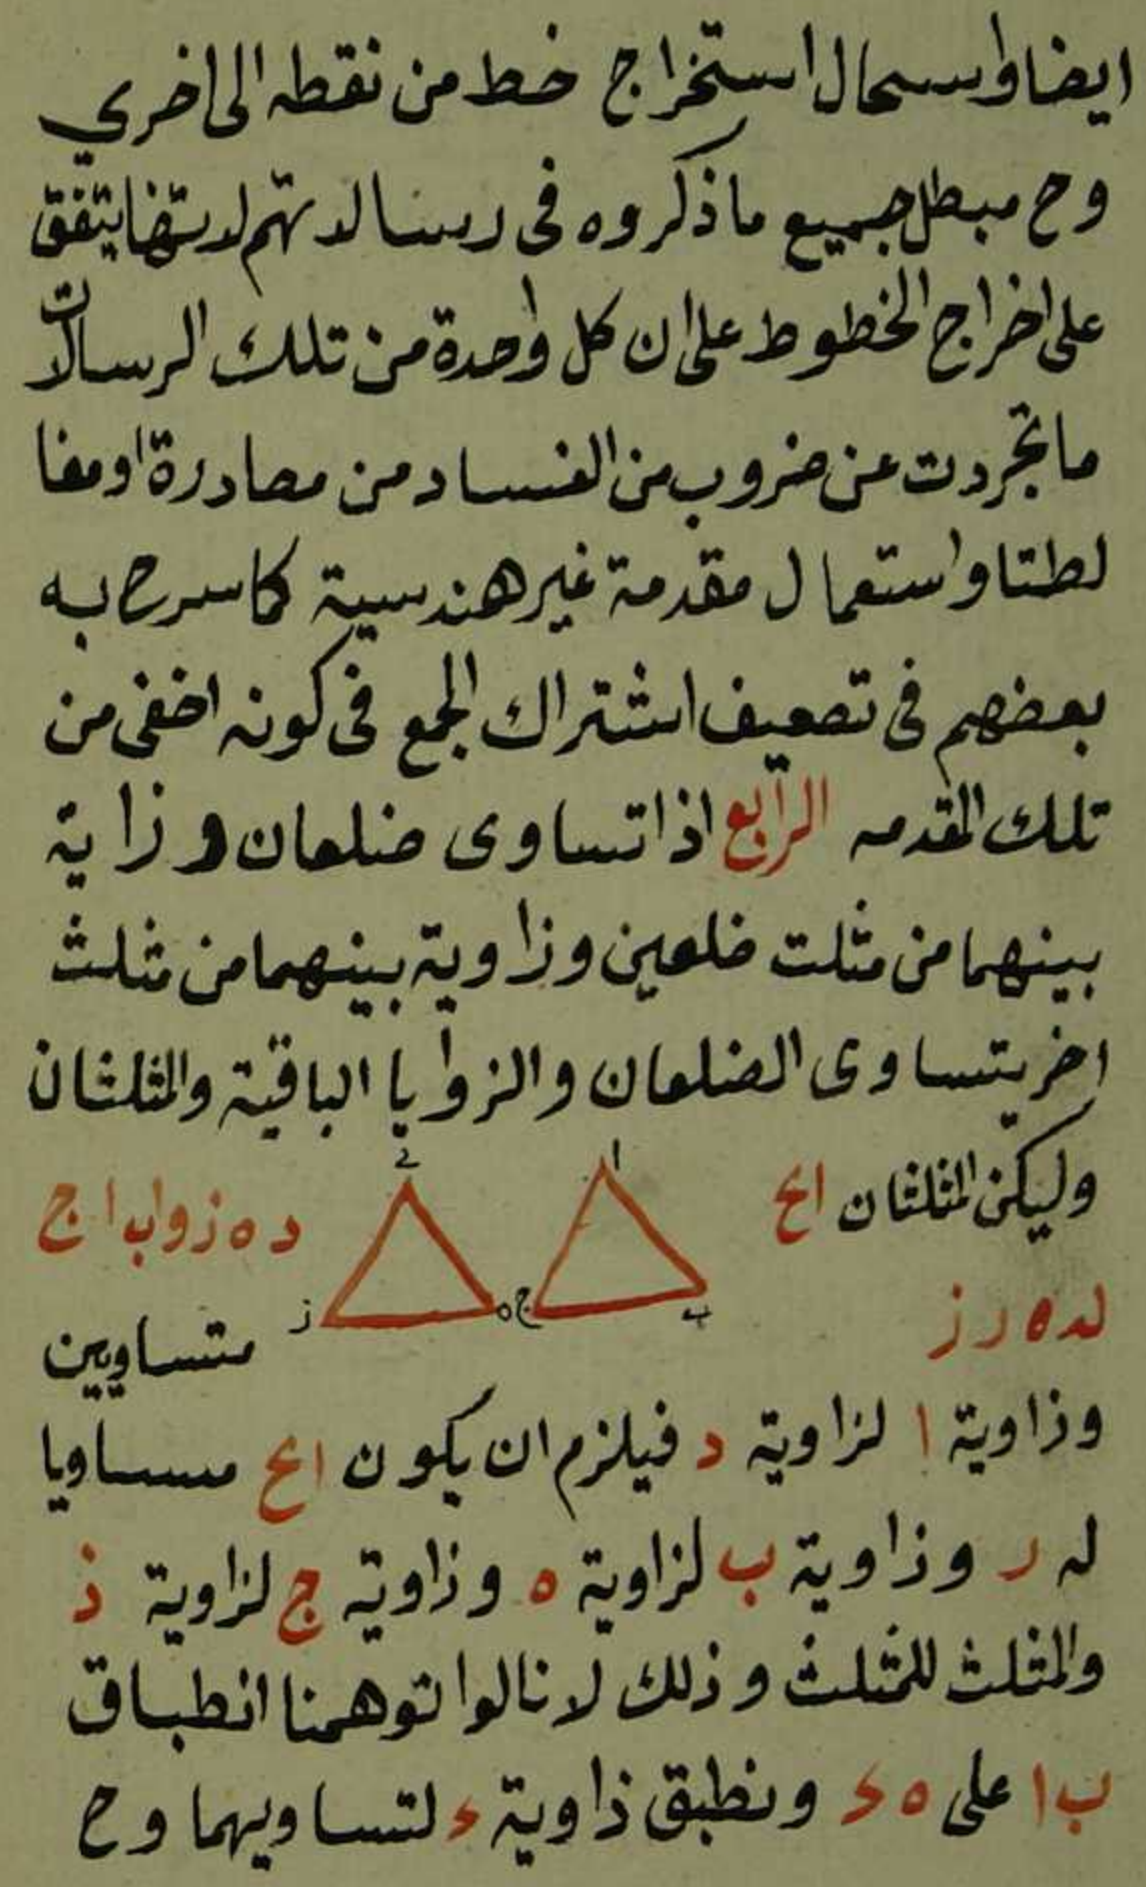 ايضا واستحال استخراج خط من نقطه الى اخري
وح مبطل جميع ما ذكروه فى رسالاتهم لابتنا يتفق
على اخراج الخطوط على ان كل واحدة من تلك الرسالات
ما تجردت عن ضروب من الفساد من مصادرة او مغا
لطتا واستعمال مقدمة غير هندسية كما سرح به
بعضهم فى تصعيف اشتراك الجمع فى كونه اخفى من
تلك المقدمه الرابع اذا تساوى ضلعان و زاية
بينهما من مثلت ضلعين وزاوية بينهما من مثلث
اخر يتساوى الضلعان والزوايا الباقية والمثلثان
وليكن المثلثان ابج
د ه ز واب ا ج
ا
د
ز
ه
ج
ب
لده د ز
متساويين
وذاوية ا لزاوية د فيلزم ان يكون بح مساويا
له ر وذاوية ب لزاوية ه وذاوية ج لزاوية ذ
والمثلث للمثلث وذلك لانا لوا توهمنا انطباق
ب ا على ه د ونطبق ذاوية ء لتساويهما وح